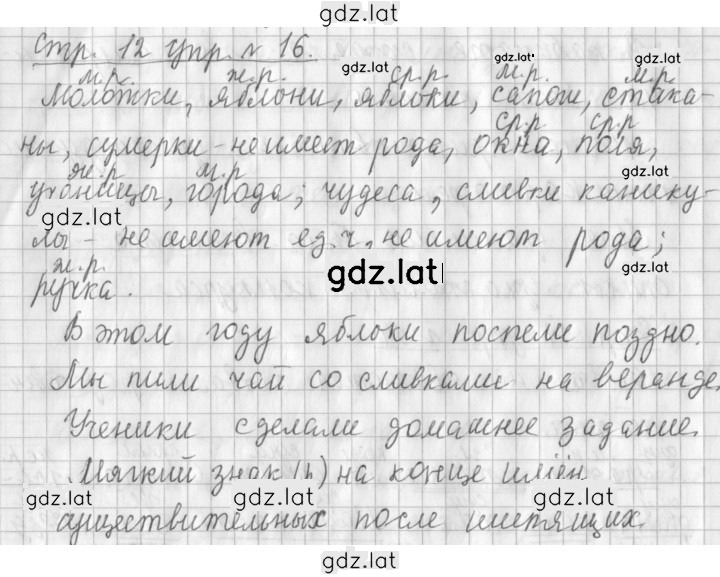 gdz.lat
Стр. 12 упр. № 16.
gdz.lat gdz.lat gdz.lat
м.р. ж.р. ср.р. м.р. м.р.
Молотки, яблони, яблоки, сапоги, стака-
ср.р ср.р
ны, сумерки - не имеет рода, окна, поля,
ж.р. м.р
ученицы, города; чудеса, сливки канику-
gdz.lat
лы - не имеют ед.ч., не имеют рода;
ж.р. gdz.lat gdz.lat
ручка.
В этом году яблоки поспели поздно.
Мы пили чай со сливками на веранде.
Ученики сделали домашнее задание.
Мягкий знак (ь) на конце имён
gdz.lat gdz.lat gdz.lat
существительных после шипящих.
gdz.lat